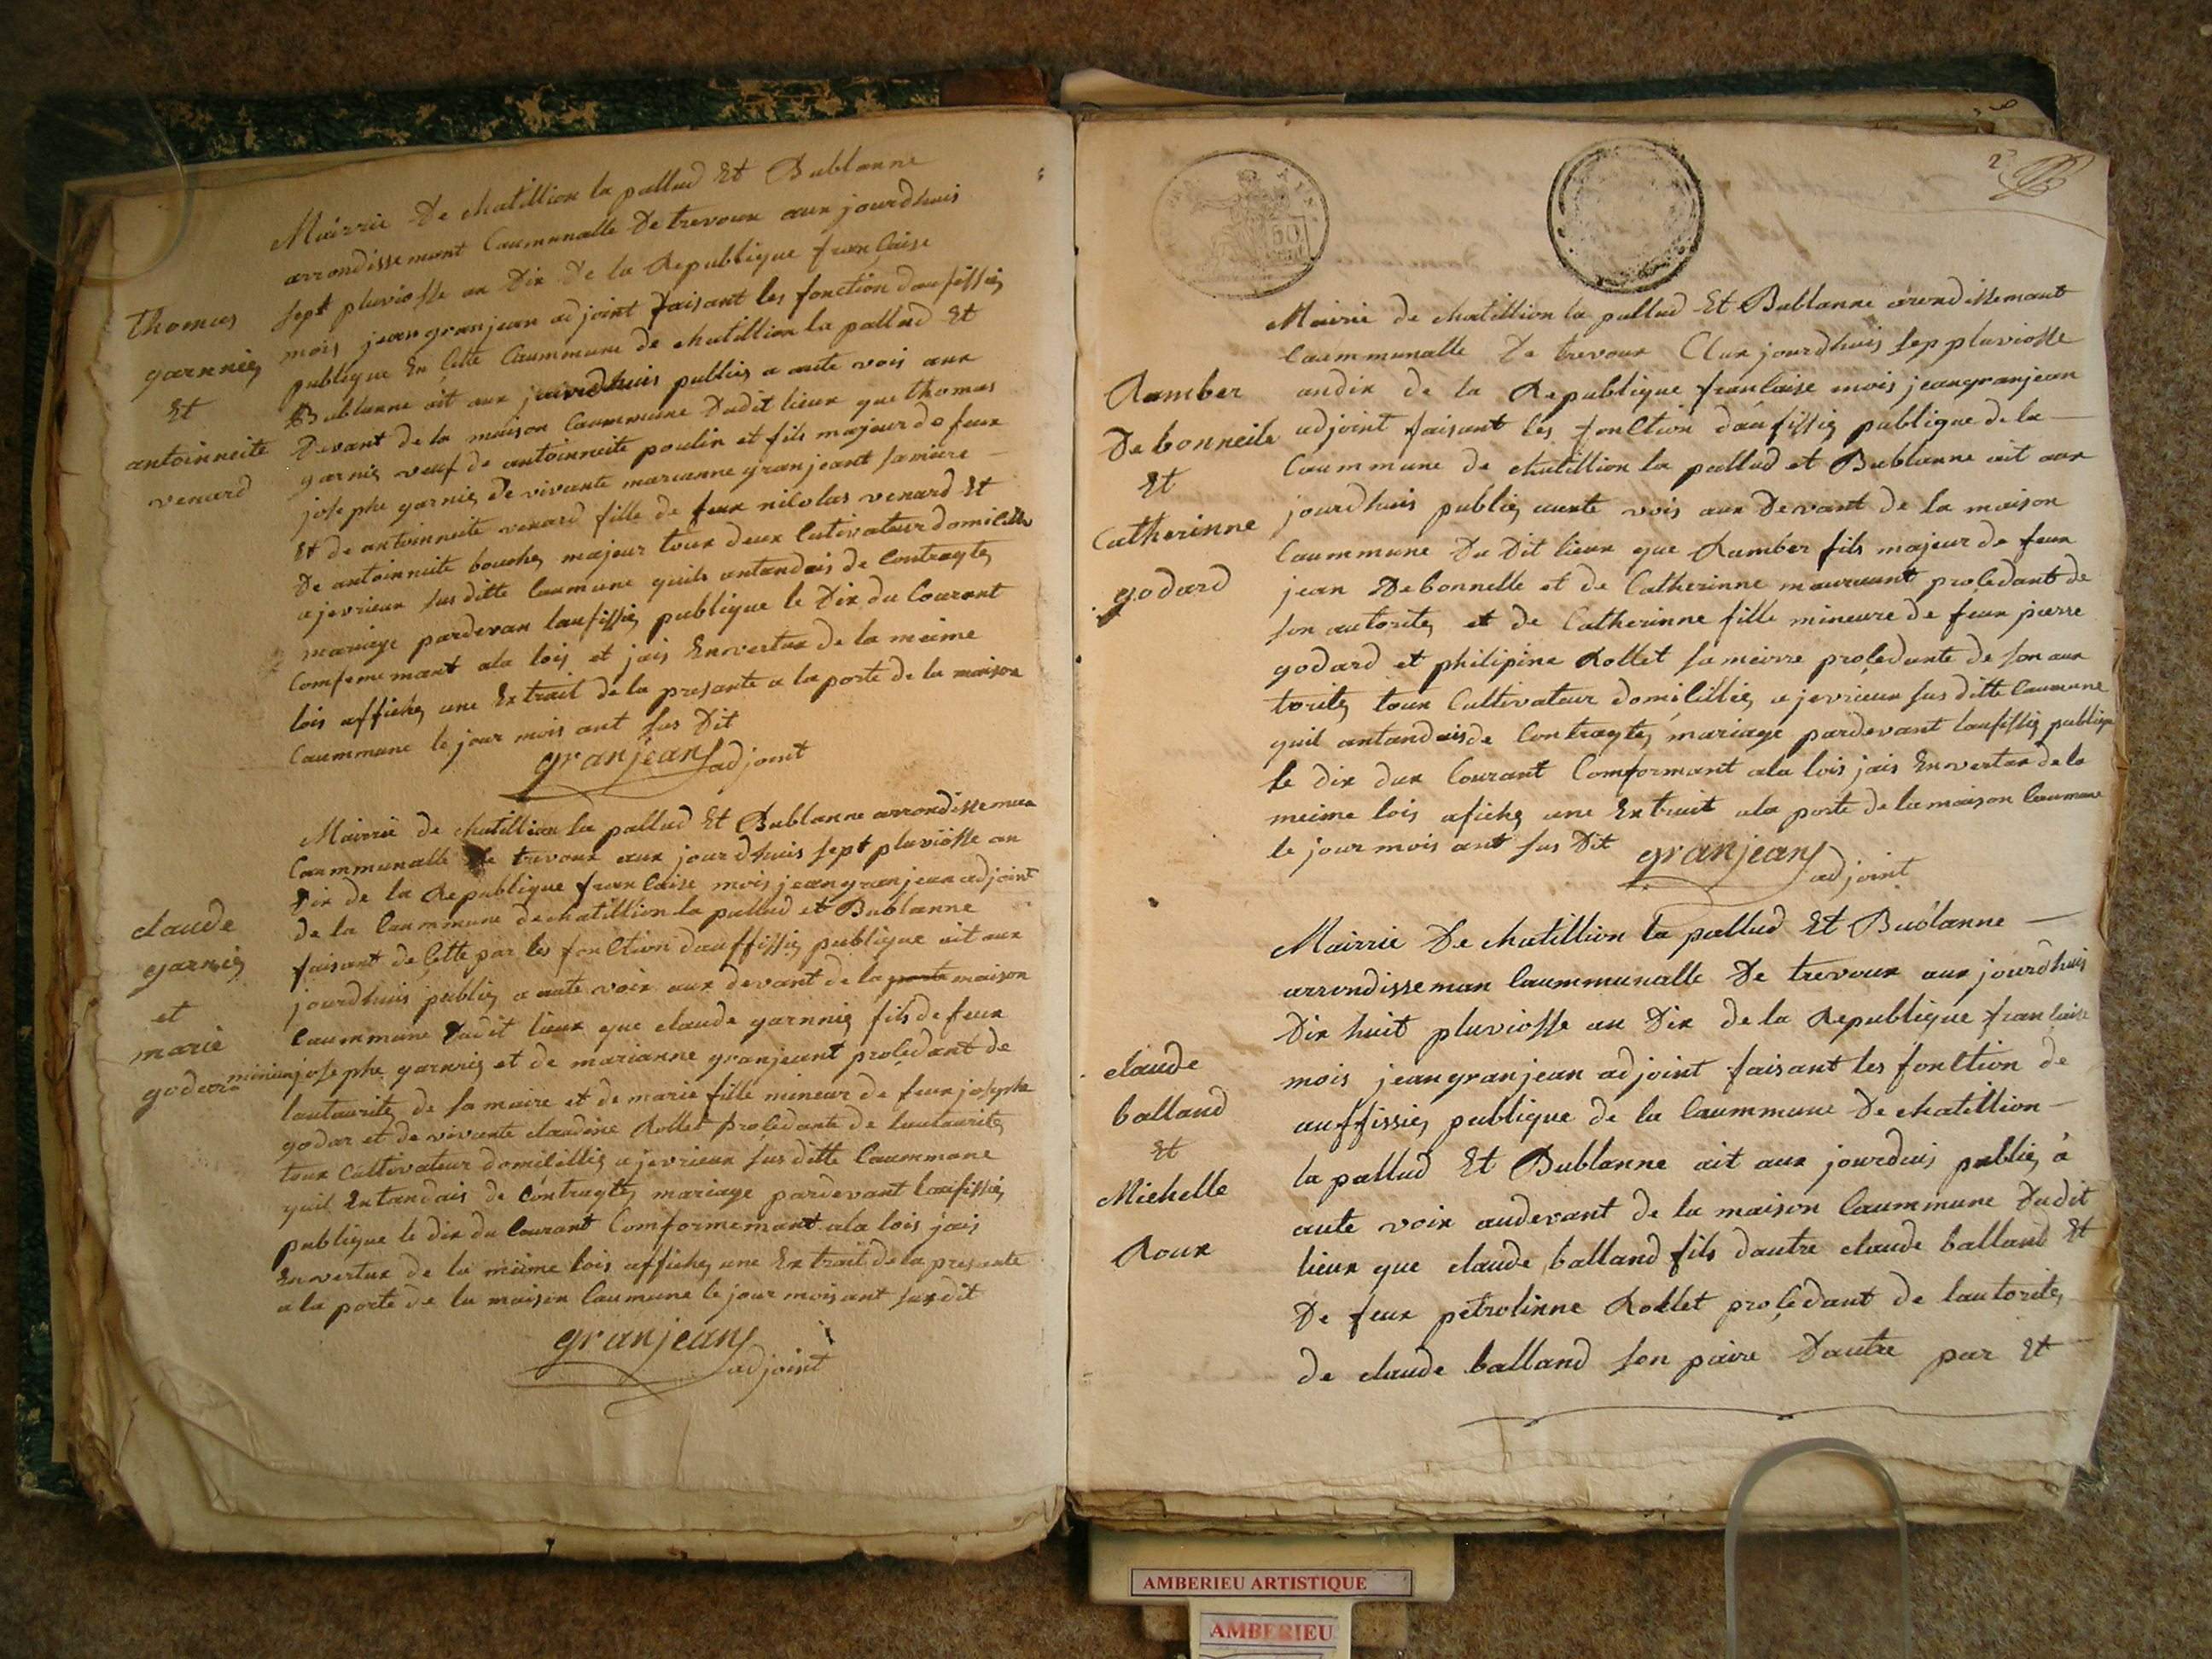 Mairrie De chatillion la pallud Et Bublanne
arrondissement Caummunalle De trevoux aux jourdhuis
sept pluviosse an Dix De la Republique francaise
mois jean granjean adjoint faisant les fonction daufissiez
publique En Cette Caummune de chatillion la pallud Et
Bublanne ait aux jourdhuis publiez a aute vois aux
Devant de la maison Caummune Dudit lieux que thomas
garniez veuf de antoinneite poulin et fils majeur de feux
josephe garniez de vivante marianne granjeant samère
Et de antoinneite venard fille de feux nicolas venard Et
De antoinneite bouchez majeur toux deux Cutivateur domicillie
a jevrieux sus ditte Caumune quils antandais de Contragtez
mariage pardevan laufissiez publique le Dix du Courant
Comfememant ala lois et jais Envertux de la meime
lois affichez une Extrait de la presante a la porte de la maison
Caummune le jour mois ant sus Dit
granjean adjoint
thomas
garnniez
Et
antoinneite
venard
Mairrie de chatillion la pallud Et Bublanne arrondissemen
Caummunalle De trevoux aux jourdhuis sept pluviosse an
Dix de la Republique francaise mois jean granjean adjoint
de la Caummune de chatillion la pallud et Bublanne
faisant de Cette par les fonction dauffissiez publique ait aux
jourdhuis publiez a aute voix aux devant de la porte maison
Caummune Dudit lieux que claude garnniez fils de feux
mineur josephe garnniez et de marianne granjeant procedant de
lautaurite de sa maire et de marie fille mineur de feux josephe
godar et de vivante claudine Rollet procedante de lautaurite
toux Cultivateur domicilliez a jevrieux sus ditte Caummune
quil Entandais de Contragtez mariage pardevant laufissiez
publique le dix du Courant Comformemant ala lois jais
Envertux de la meime lois affichez une Extrait de la presante
a la porte de la maison Caumune le jour mois ant susdit
granjean adjoint
claude
garniez
et
marie
godar
2
Mairie de chatillion la pallud Et Bublanne arondissemant
Caummunalle De trevoux Aux jourdhuis sep pluviosse
andix de la Republique francaise mois jeangranjean
adjoint faisant les fonction daufissiez publique de la
Caummune de chatillion la pallud et Bublanne ait aux
jourdhuis publiez aute vois aux Devant de la maison
Caummune Du Dit lieux que Ramber fils majeur de feux
jean Debonnelle et de Catherinne mauruant procedant de
son autorite et de Catherinne fille mineure de feux pierre
godard et philipine Rollet sa meirre procedante de son aux
torite toux Cultivateur domicilliez a jevrieux sus ditte Caumune
quil antandais de Contragtez mariage pardevant laufissiez publique
le dix dux Courant Comformant ala lois jais Envertux de la
meime lois afichez une Extrait ala porte de la maison Caumune
le jour mois ant sus Dit granjean
adjoint
Ramber
Debonneile
Et
Catherinne
godard
Mairrie De chatillion la pallud Et Bublanne
arrondisseman Caummunalle De trevoux aux jourdhuis
Dix huit pluviosse an Dix de la Republique francaise
mois jeangranjean adjoint faisant les fonction de
auffissiez publique de la Caummune De chatillion
la pallud Et Bublanne ait aux jourduis publiez à
aute voix audevant de la maison Caummune Dudit
lieux que claude balland fils dautre claude balland Et
De feux petrolinne Rollet procedant de lautorite
de claude balland son paire Dautre par Et
claude
balland
Et
Michelle
Roux
AMBERIEU ARTISTIQUE
AMBERIEU